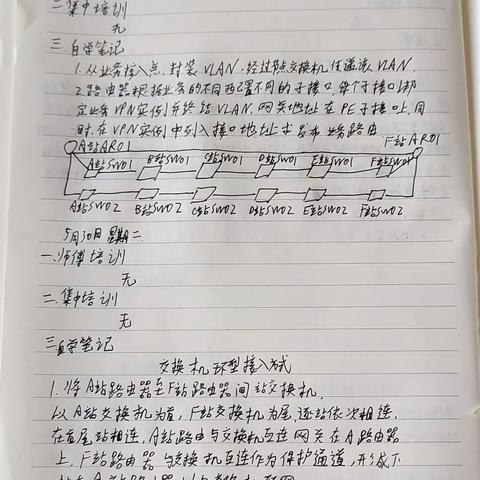 二.集中培训
无
三.自学笔记
1.从业务接入点,封装VLAN,经过站交换机传递该VLAN
2.路由器根据业务的不同配置不同的子接口,每个子接口绑
定业务VPN实例并终结VLAN,网关地址在PE子接口上,同
时,在VPN实例中引入接口地址来发布业务路由
A站AR01 F站AR01
A站SW01 B站SW01 C站SW01 D站SW01 E站SW01 F站SW01
A站SW02 B站SW02 C站SW02 D站SW02 E站SW02 F站SW02
5月30日 星期二
一.师傅培训
无
二.集中培训
无
三.自学笔记
交换机环型接入方式
1.将A站路由器至F站路由器间站交换机,
以A站交换机为首,F站交换机为尾,逐站依次相连,
在首尾站相连,A站路由与交换机互连网关在A路由器
上,F站路由器与交换机互连作为保护通道,形成下